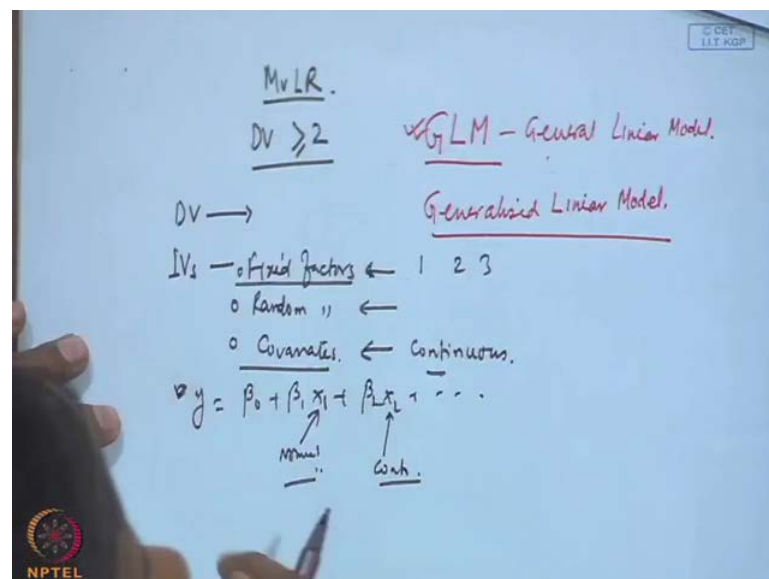 © CET
I.I.T. KGP
MvLR.
DV ≥ 2
GLM - General Linear Model.
Generalised Linear Model.
DV →
IVs - o Fixed factors ← 1 2 3
o Random " ←
o Covariates. ← Continuous.
y = β₀ + β₁ x₁ + β₂ x₂ + ...
Cont.
NPTEL